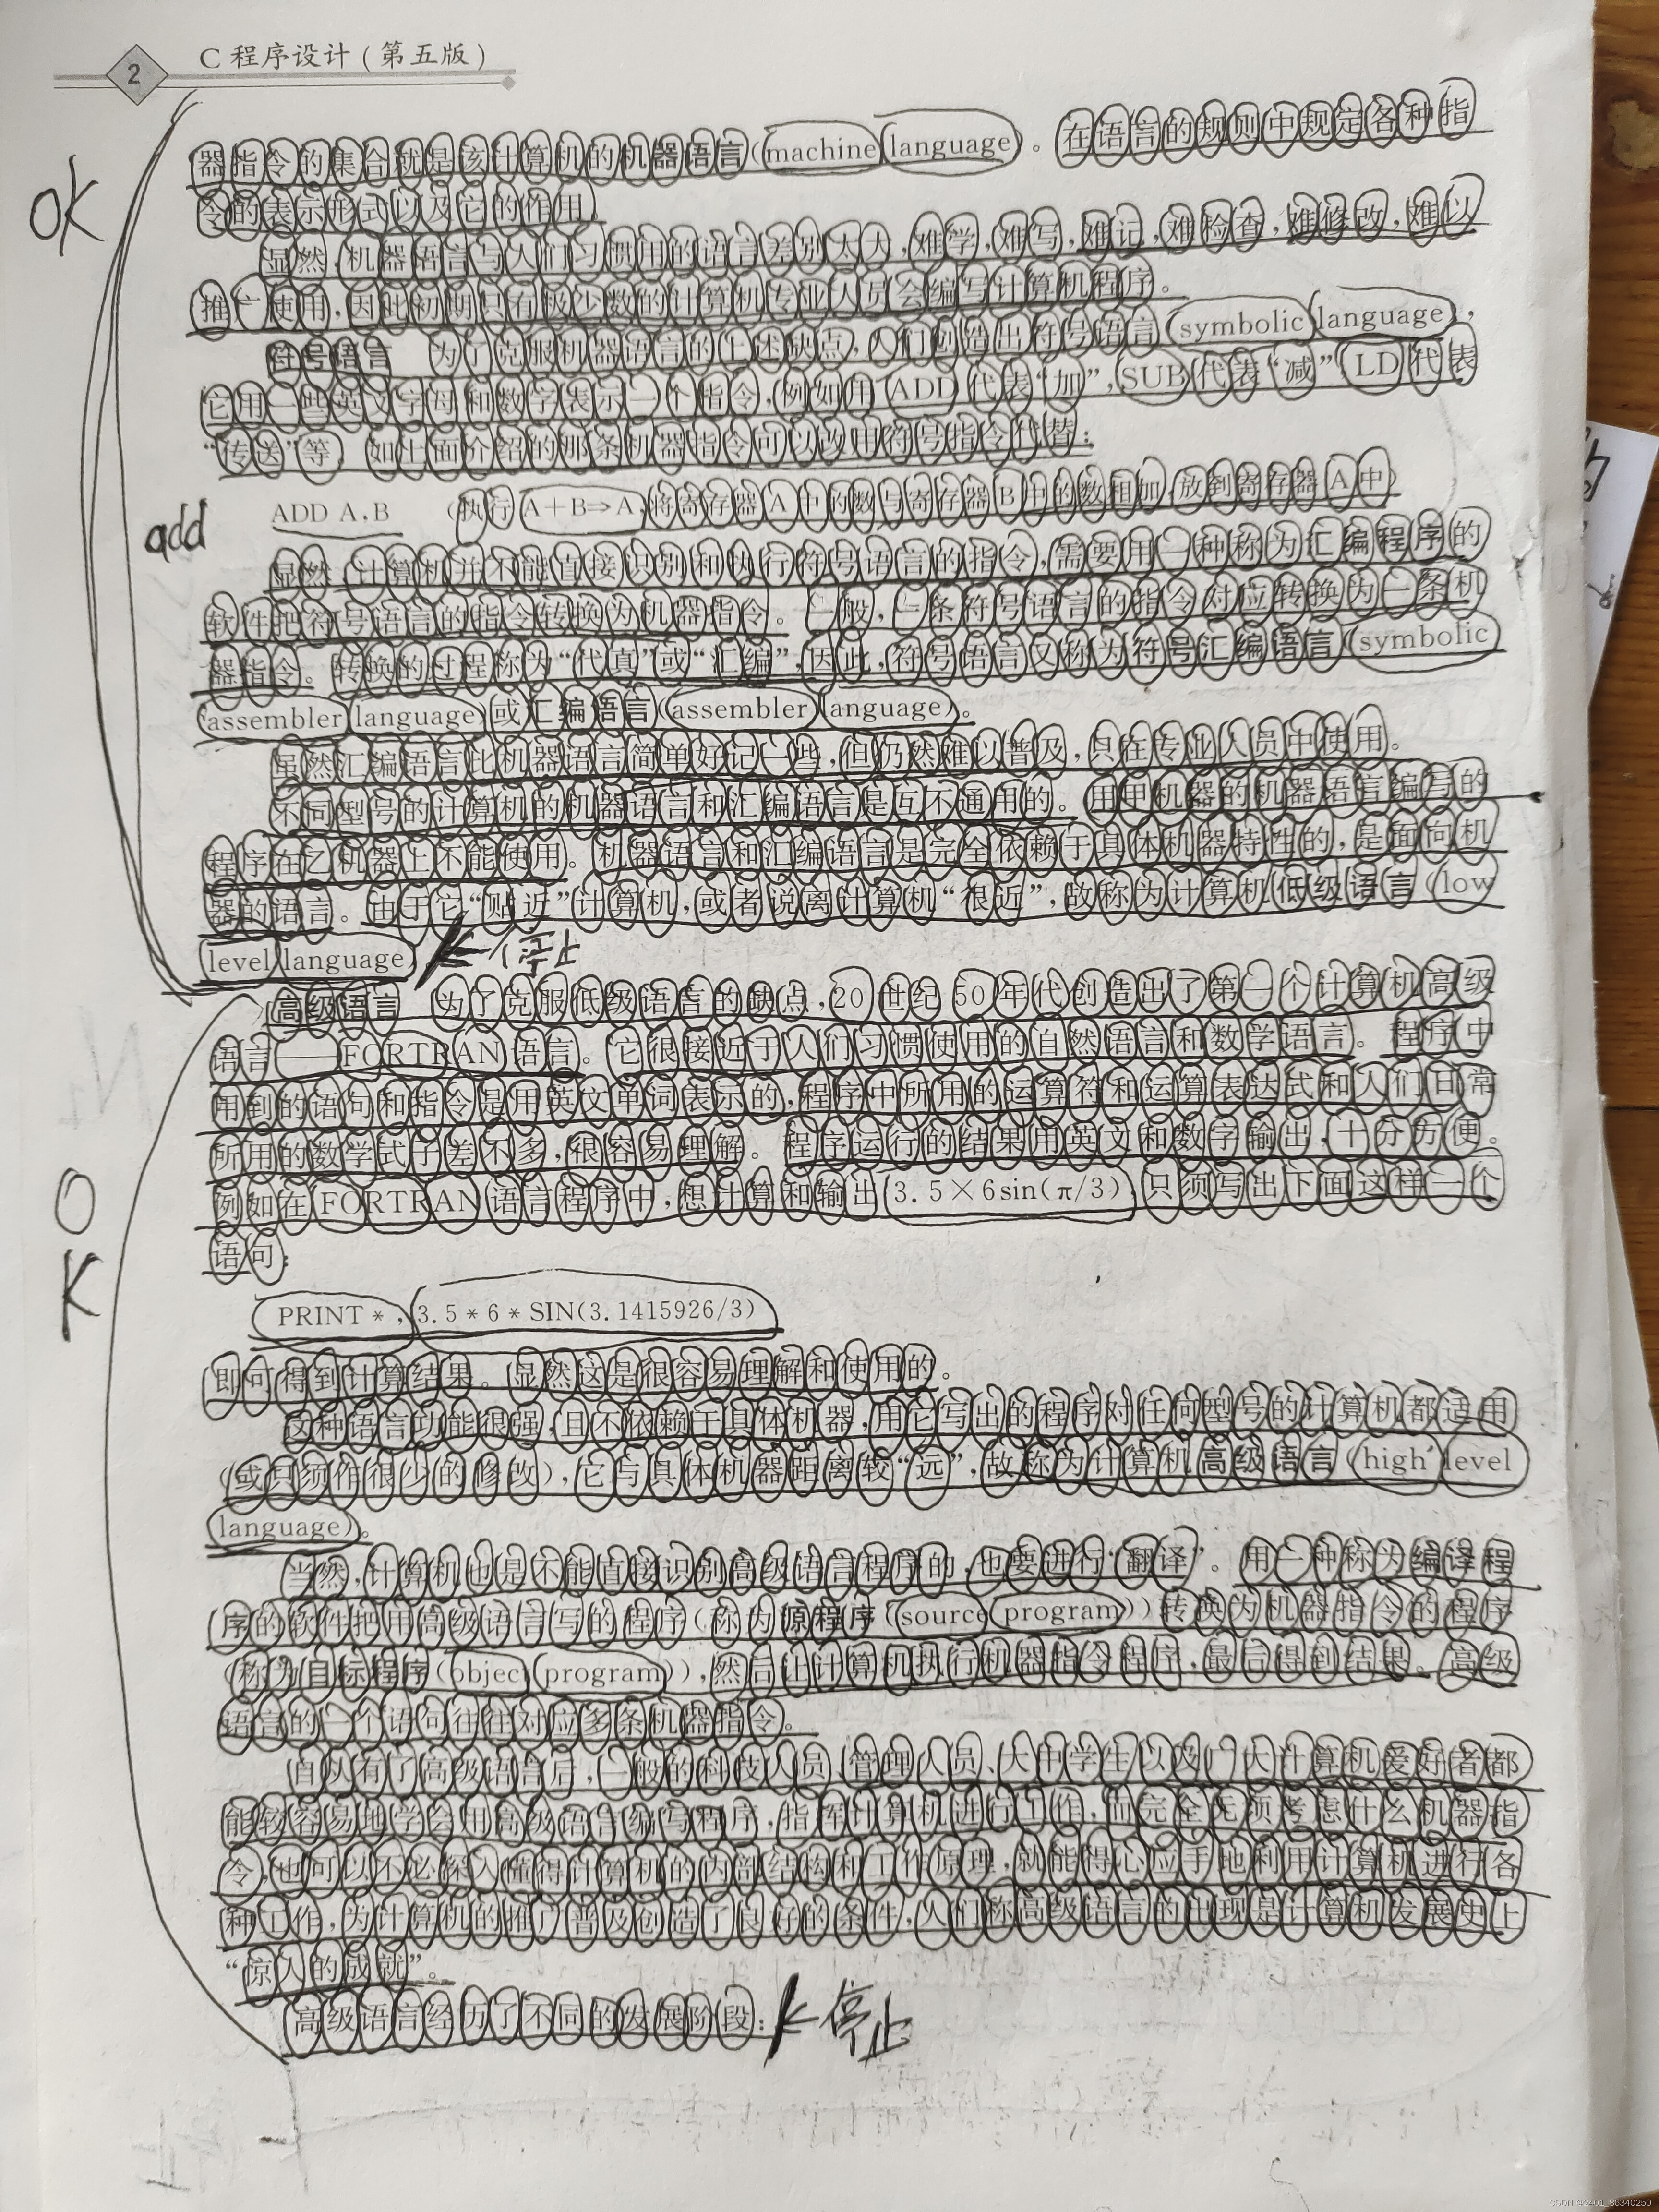 2 C 程序设计(第五版)
器指令的集合就是该计算机的机器语言(machine language)。在语言的规则中规定各种指
令的表示形式以及它的作用。
OK
显然,机器语言与人们习惯用的语言差别太大,难学,难写,难记,难检查,难修改,难以
推广使用,因此初期只有极少数的计算机专业人员会编写计算机程序。
符号语言 为了克服机器语言的上述缺点,人们创造出符号语言(symbolic language),
它用一些英文字母和数字表示一个指令,例如用 ADD 代表“加”,SUB 代表“减”,LD 代表
“传送”等。如上面介绍的那条机器指令可以改用符号指令代替:
ADD A,B (执行 A+B⇒A,将寄存器 A 中的数与寄存器 B 中的数相加,放到寄存器 A 中)
add
显然,计算机并不能直接识别和执行符号语言的指令,需要用一种称为汇编程序的
软件把符号语言的指令转换为机器指令。一般,一条符号语言的指令对应转换为一条机
器指令。转换的过程称为“代真”或“汇编”,因此,符号语言又称为符号汇编语言(symbolic
assembler language)或汇编语言(assembler language)。
虽然汇编语言比机器语言简单好记一些,但仍然难以普及,只在专业人员中使用。
不同型号的计算机的机器语言和汇编语言是互不通用的。用甲机器的机器语言编写的
程序在乙机器上不能使用。机器语言和汇编语言是完全依赖于具体机器特性的,是面向机
器的语言。由于它“贴近”计算机,或者说离计算机“很近”,故称为计算机低级语言(low
level language)。 停止
高级语言 为了克服低级语言的缺点,20 世纪 50 年代创造出了第一个计算机高级
语言——FORTRAN 语言。它很接近于人们习惯使用的自然语言和数学语言。程序中
用到的语句和指令是用英文单词表示的,程序中所用的运算符和运算表达式和人们日常
所用的数学式子差不多,很容易理解。程序运行的结果用英文和数字输出,十分方便。
例如在 FORTRAN 语言程序中,想计算和输出 3.5×6sin(π/3),只须写出下面这样一个
语句:
O
K
PRINT *,3.5 * 6 * SIN(3.1415926/3)
即可得到计算结果。显然这是很容易理解和使用的。
这种语言功能很强,且不依赖于具体机器,用它写出的程序对任何型号的计算机都适用
(或只须作很少的修改),它与具体机器距离较“远”,故称为计算机高级语言(high level
language)。
当然,计算机也是不能直接识别高级语言程序的,也要进行“翻译”。用一种称为编译程
序的软件把用高级语言写的程序(称为源程序(source program))转换为机器指令的程序
(称为目标程序(object program)),然后让计算机执行机器指令程序,最后得到结果。高级
语言的一个语句往往对应多条机器指令。
自从有了高级语言后,一般的科技人员、管理人员、大中学生以及广大计算机爱好者都
能较容易地学会用高级语言编写程序,指挥计算机进行工作,而完全无须考虑什么机器指
令,也可以不必深入懂得计算机的内部结构和工作原理,就能得心应手地利用计算机进行各
种工作,为计算机的推广普及创造了良好的条件,人们称高级语言的出现是计算机发展史上
“惊人的成就”。
高级语言经历了不同的发展阶段: 停止
CSDN @2401_86340250